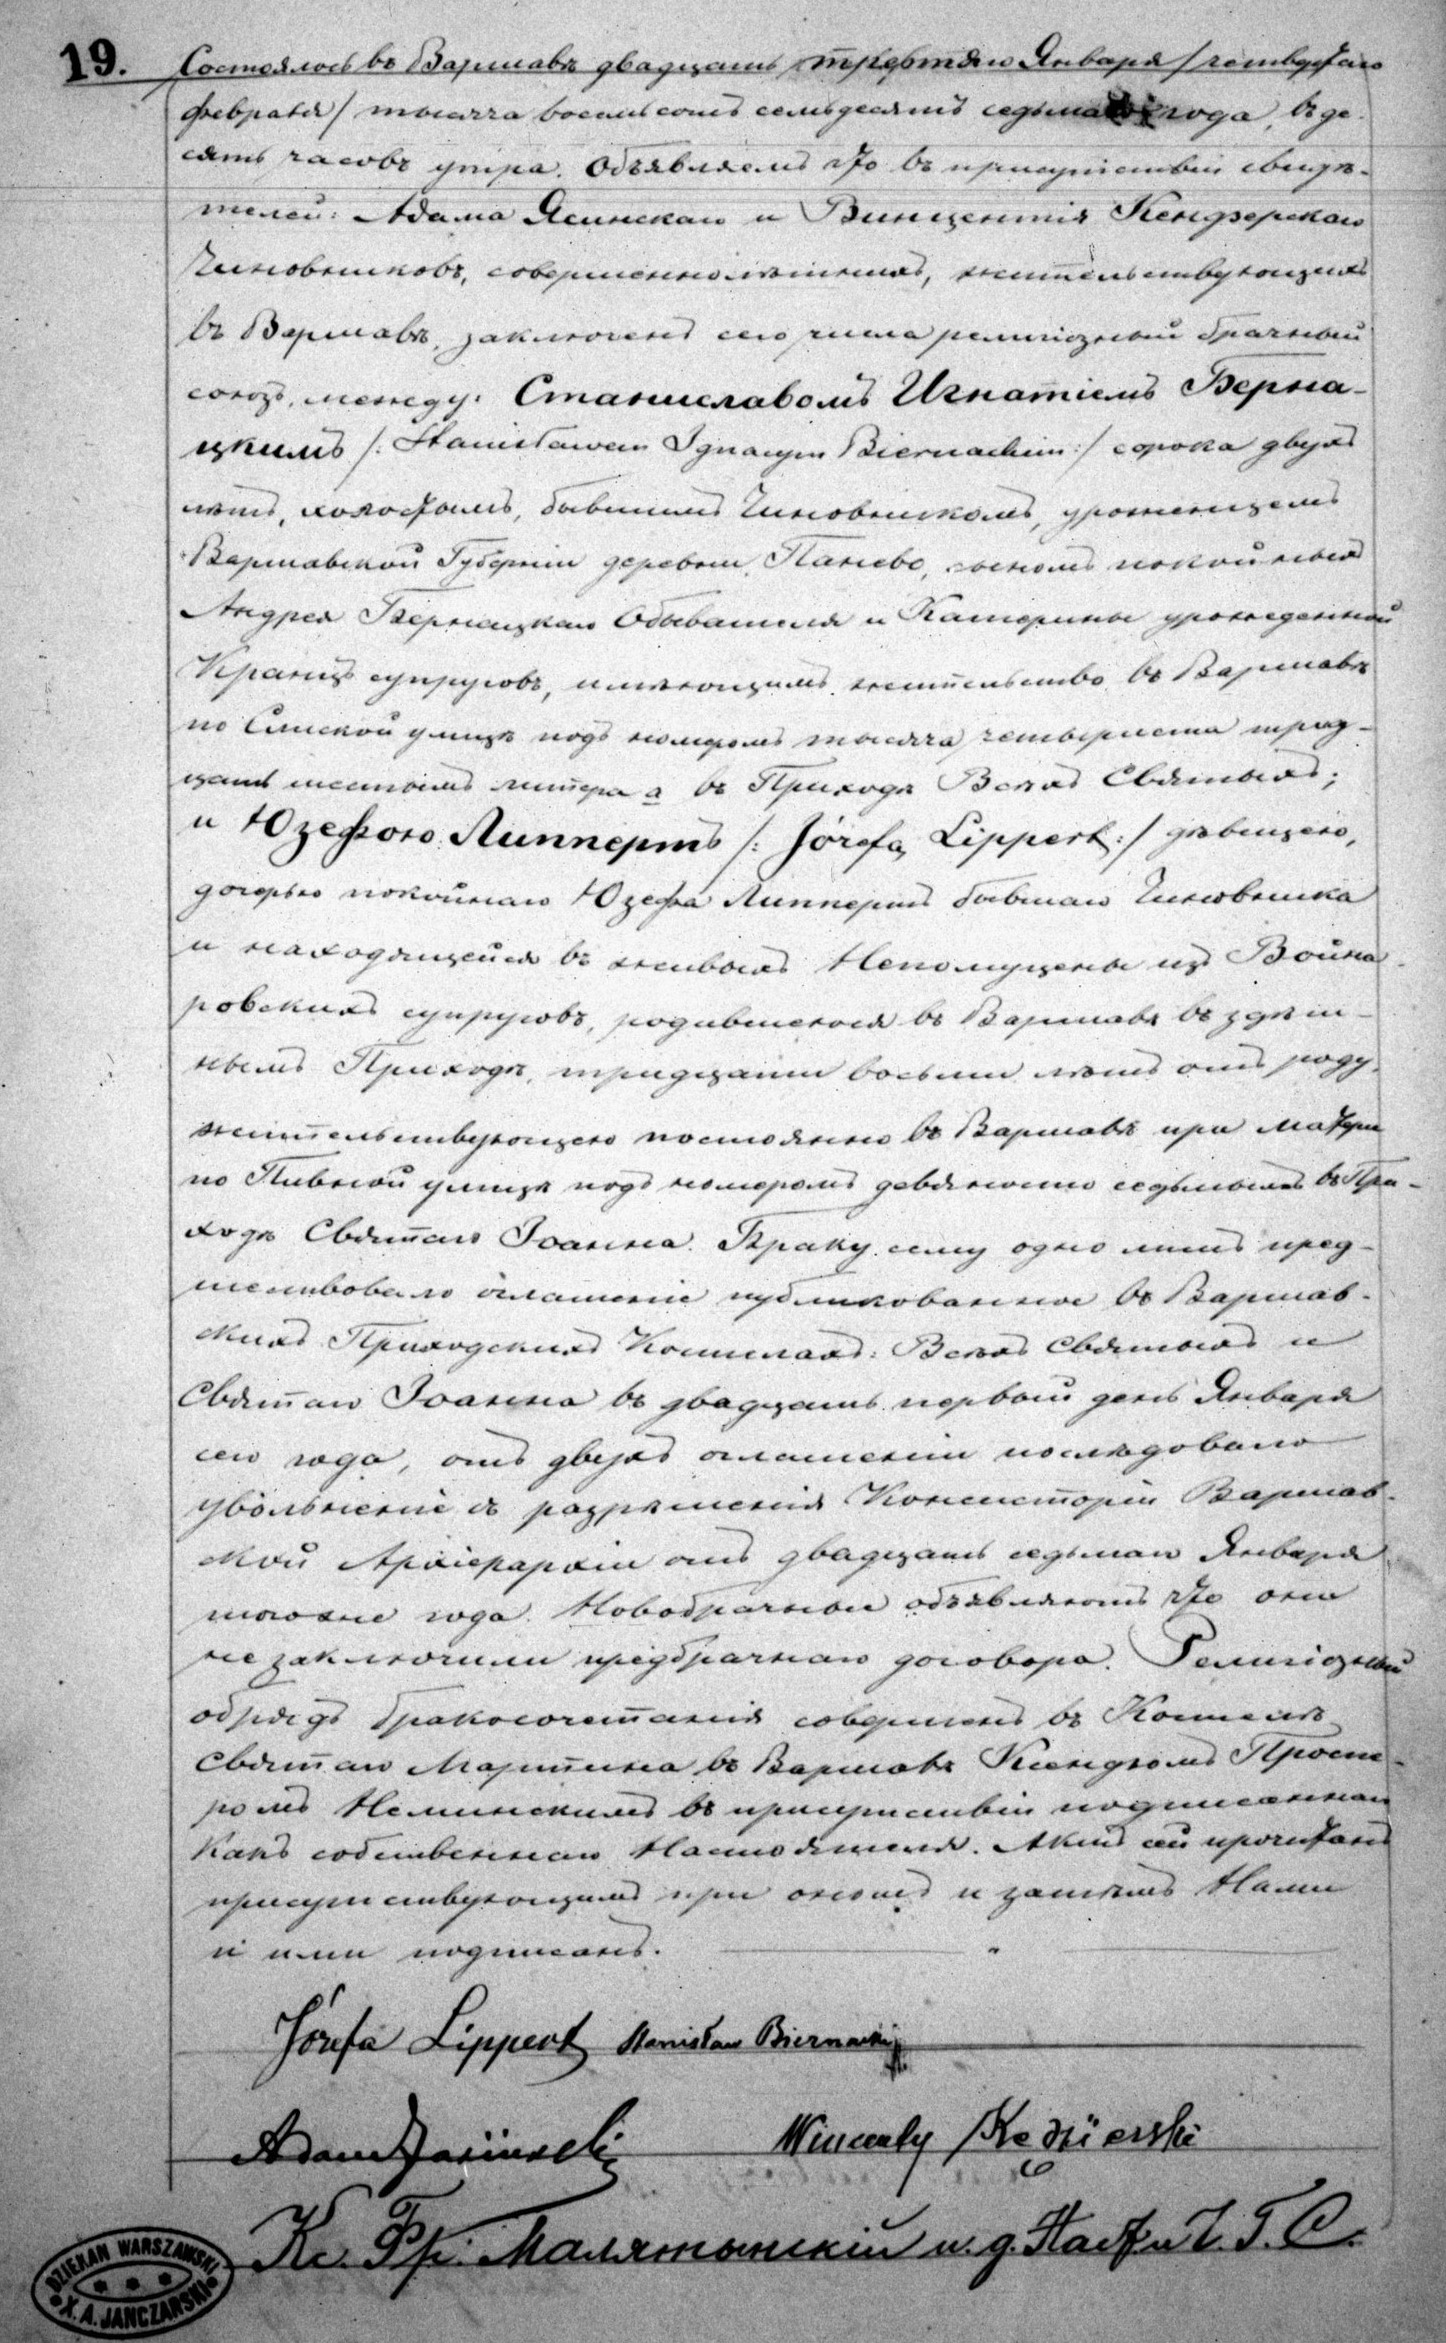 19.
Состоялось въ Варшавѣ двадцать третьяго Января /четвертаго
Февраля/ тысяча восемьсотъ семьдесятъ седьмаго года, въ де-
сять часовъ утра. Объявляемъ что въ присутствіи свидѣ-
телей: Адама Ясинскаго и Винцентія Кендзерскаго
Чиновниковъ, совершеннолѣтнихъ, жительствующихъ
въ Варшавѣ, заключенъ сего числа религіозный брачный
союзъ, между: Станиславомъ Игнатіемъ Берна-
цкимъ /: Stanisławem Ignacym Biernackim :/ сорока двухъ
лѣтъ, холостымъ, бывшимъ Чиновникомъ, уроженцемъ
Варшавской Губерніи деревни Панево, сыномъ покойныхъ
Андрея Бернацкаго Обывателя и Катерины урожденной
Кранцъ супруговъ, имѣющимъ жительство въ Варшавѣ
по Слиской улицѣ подъ номеромъ тысяча четыреста трид-
цать шестымъ литера а въ Приходѣ Всѣхъ Святыхъ;
и Юзефою Липпертъ /: Józefą Lippert :/ дѣвицею,
дочерью покойнаго Юзефа Липпертъ бывшаго Чиновника
и находящейся въ живыхъ Непомуцены изъ Война-
ровскихъ супруговъ, родившеюся въ Варшавѣ въ здѣш-
немъ Приходѣ, тридцати восьми лѣтъ отъ роду,
жительствующею постоянно въ Варшавѣ при матери
по Пивной улицѣ подъ номеромъ девяносто седьмымъ въ При-
ходѣ Святаго Іоанна. Браку сему одно лишь пред-
шествовало оглашеніе публикованное въ Варшав-
скихъ Приходскихъ Костелахъ: Всѣхъ Святыхъ и
Святаго Іоанна въ двадцать первый день Января
сего года, отъ двухъ оглашеній послѣдовало
увольненіе съ разрѣшенія Консисторіи Варшав-
ской Архіерархіи отъ двадцать седьмаго Января
тогоже года. Новобрачные объявляютъ что они
не заключили предбрачнаго договора. Религіозный
обрядъ бракосочетанія совершенъ въ Костелѣ
Святаго Мартина въ Варшавѣ Ксендзомъ Проспе-
ромъ Неминскимъ въ присутствіи подписаннаго
какъ собственнаго Настоятеля. Актъ сей прочитанъ
присутствующимъ при ономъ и затѣмъ Нами
и ими подписанъ.
Józefa Lippert Stanisław Biernacki
Adam Jasiński Wincenty Kędzierski
Кс. Фр. Малятынскій и. д. Наст. и Ч. Г. С.
DZIEKAN WARSZAWSKI
X. A. JANCZARSKI